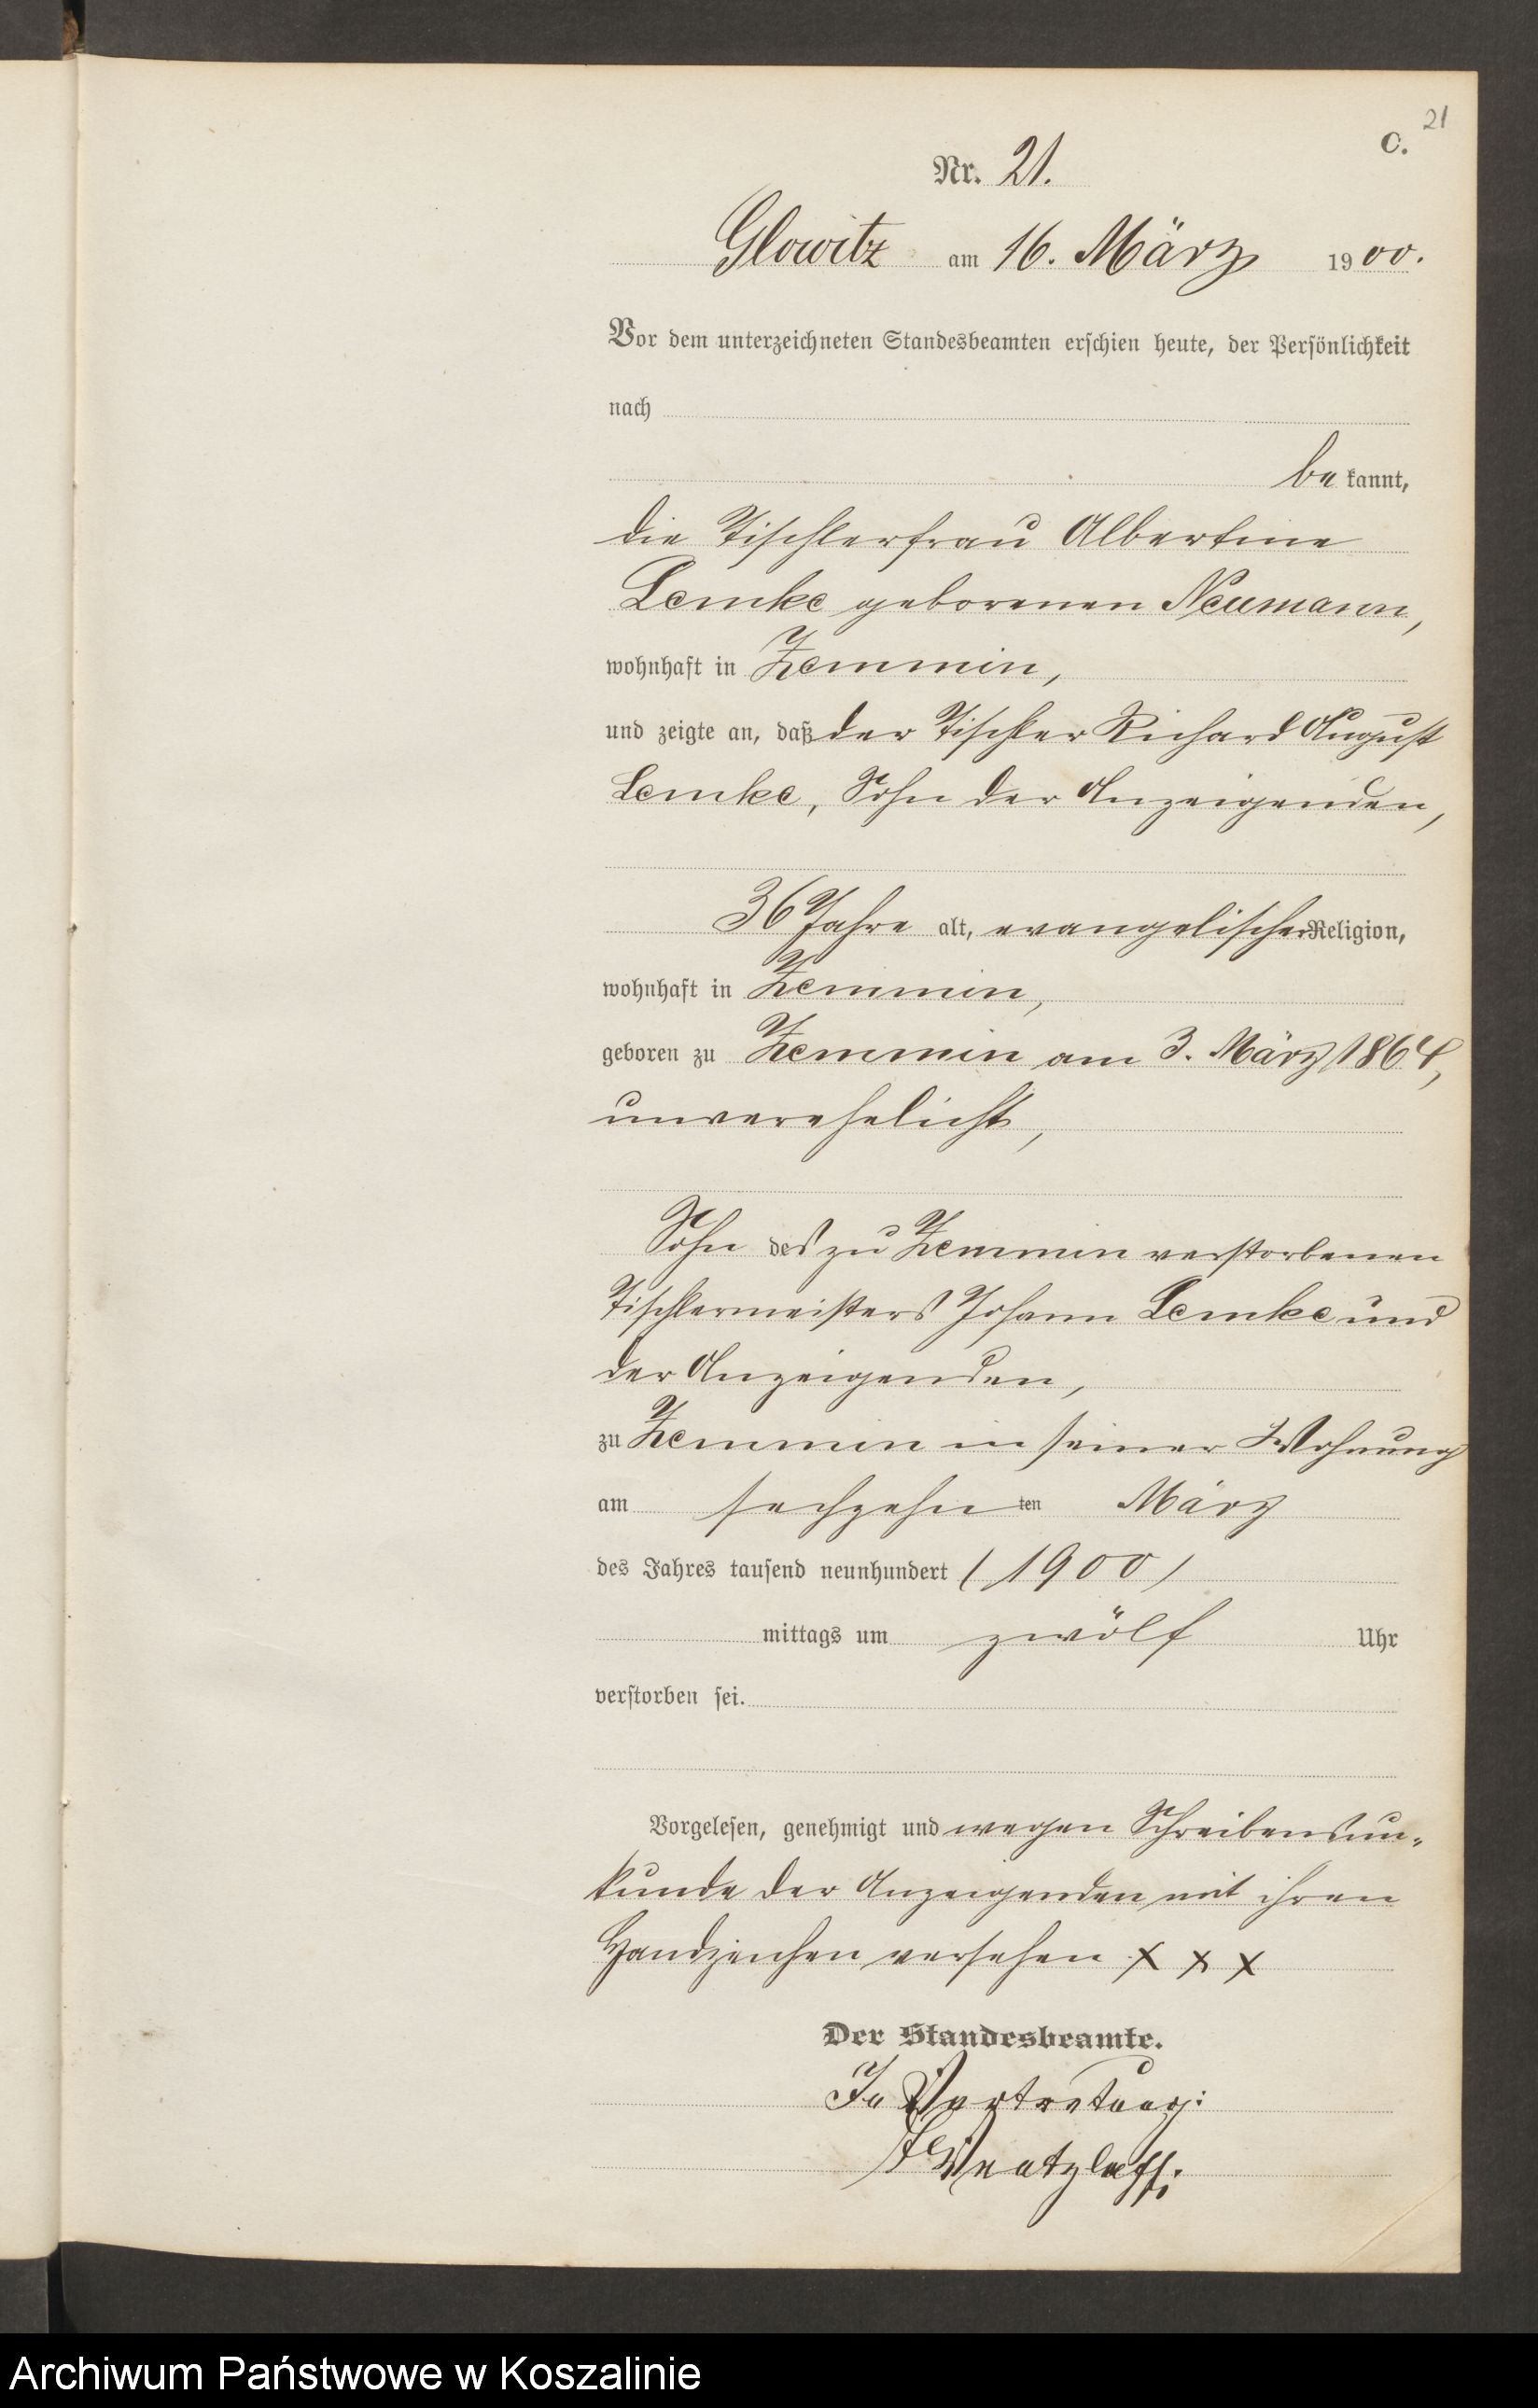 21
C.
Nr. 21.
Glowitz am 16. März 1900.
Vor dem unterzeichneten Standesbeamten erschien heute, der Persönlichkeit
nach
bekannt,
die Tischlerfrau Albertine
Lemke geborenen Neumann,
wohnhaft in Zemmin,
und zeigte an, daß der Tischler Richard August
Lemke, Sohn der Anzeigenden,
36 Jahre alt, evangelischer Religion,
wohnhaft in Zemmin,
geboren zu Zemmin am 3. März 1864,
unverehelicht,
Sohn des zu Zemmin verstorbenen
Tischlermeisters Johann Lemke und
der Anzeigenden,
zu Zemmin in seiner Wohnung
am sechzehnten März
des Jahres tausend neunhundert (1900)
mittags um zwölf Uhr
verstorben sei.
Vorgelesen, genehmigt und wegen Schreibensun-
kunde der Anzeigenden mit ihren
Handzeichen versehen x x x
Der Standesbeamte.
In Vertretung:
Archiwum Państwowe w Koszalinie